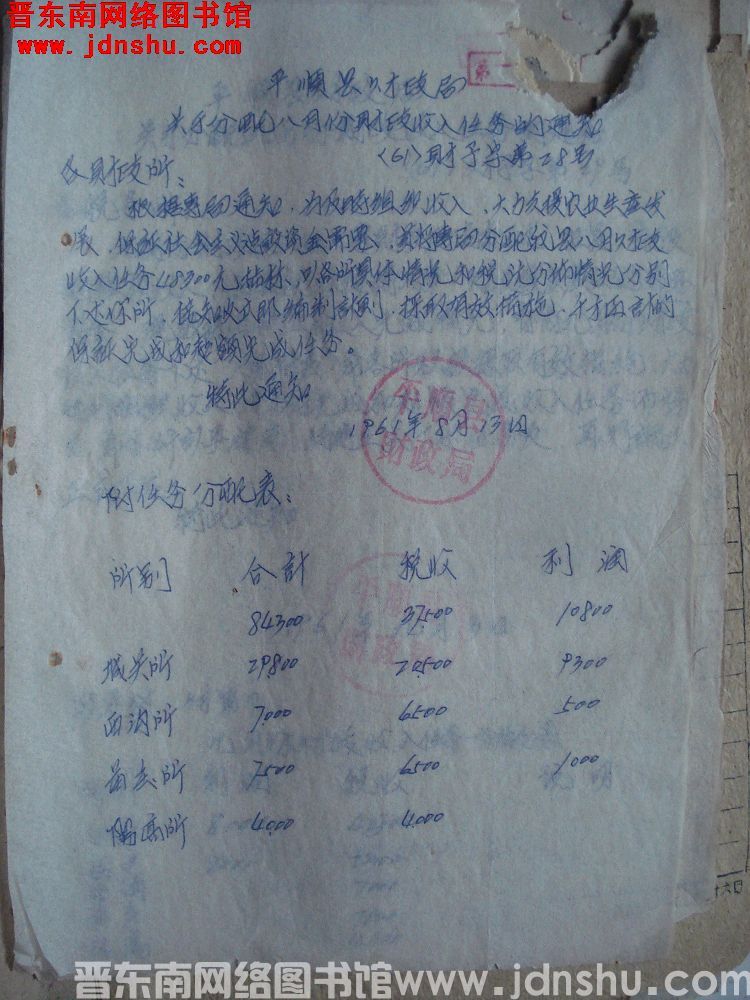 晋东南网络图书馆
www.jdnshu.com
第一
平顺县财政局
关于分配八月份财政收入任务的通知
(61)财予字第28号
各财政所：
根据专局通知，为及时组织收入，大力支援农业生产发
展，保证社会主义建设资金需要，兹将专局分配我县八月财政
收入任务48300元指标，以各所具体情况和税源分布情况分别
下达你所，
保证完成和超额完成任务。
特此通知
平顺县
财政局
1961年8月13日
附任务分配表：
所别 合計 税收 利润
84300 37500 10800
城关所 29800 20500 9300
西沟所 7000 6500 500
苗庄所 7500 6500 1000
阳高所 4000 4000
平顺县
财政局
十六日
晋东南网络图书馆 www.jdnshu.com